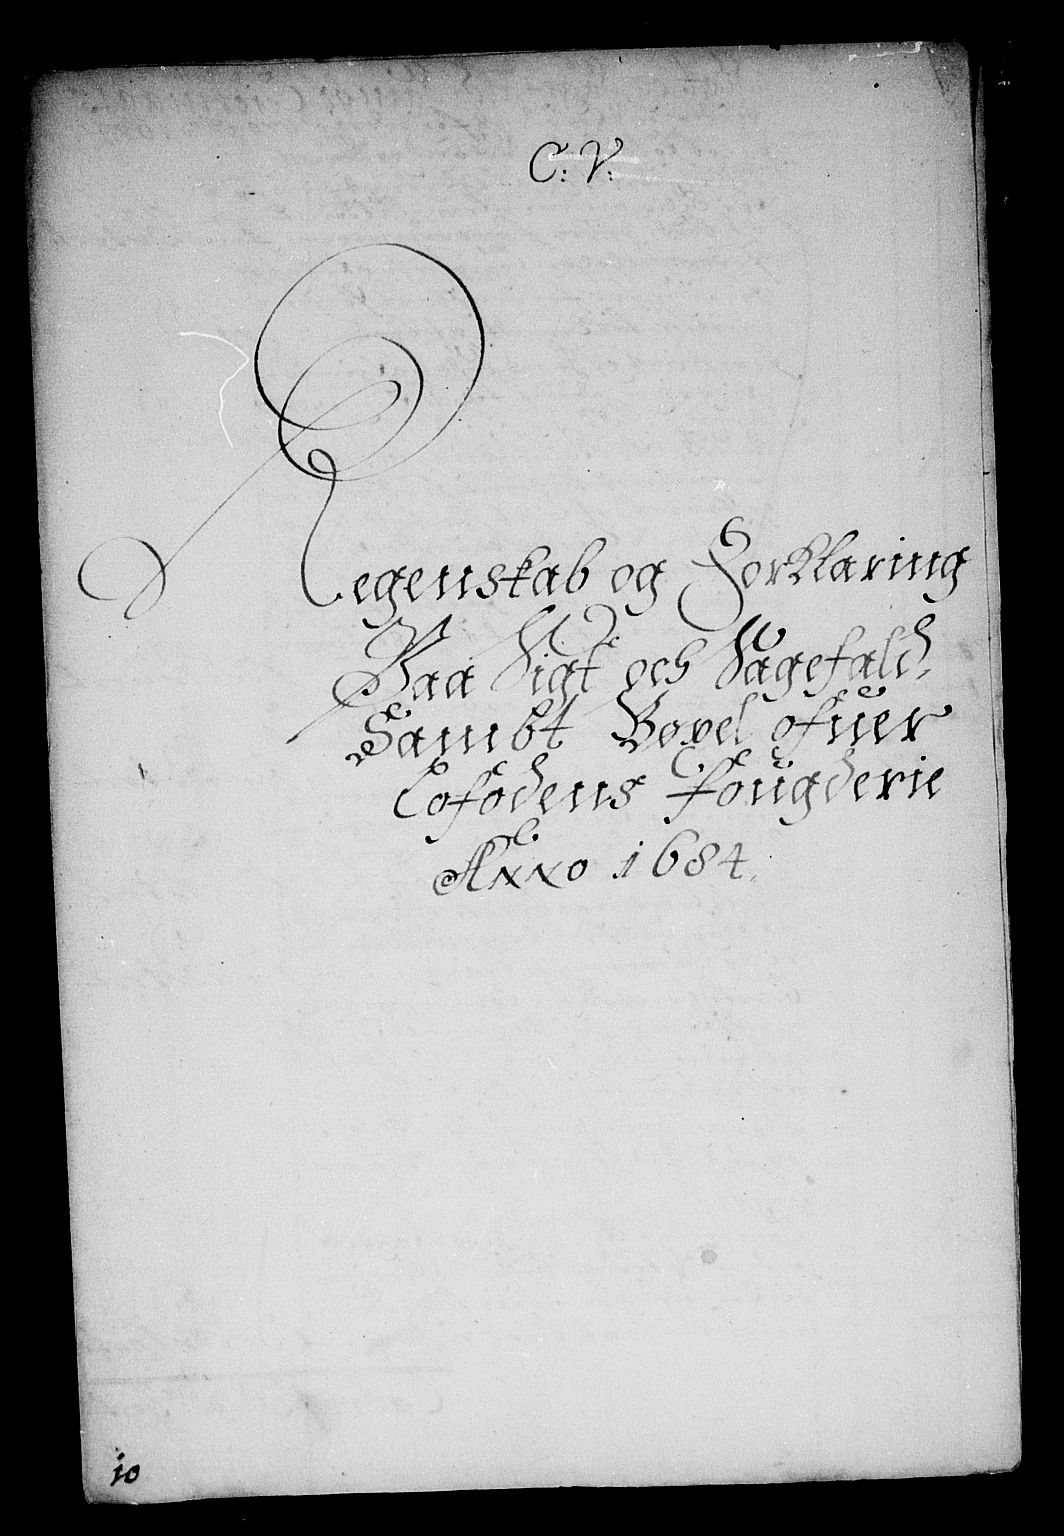 C: V:
Regenskab og Forklaring
Paa Sigt och Sagefald,
Sambt Boxel ofuer
Lofodens fougderie
Anno 1684.
10